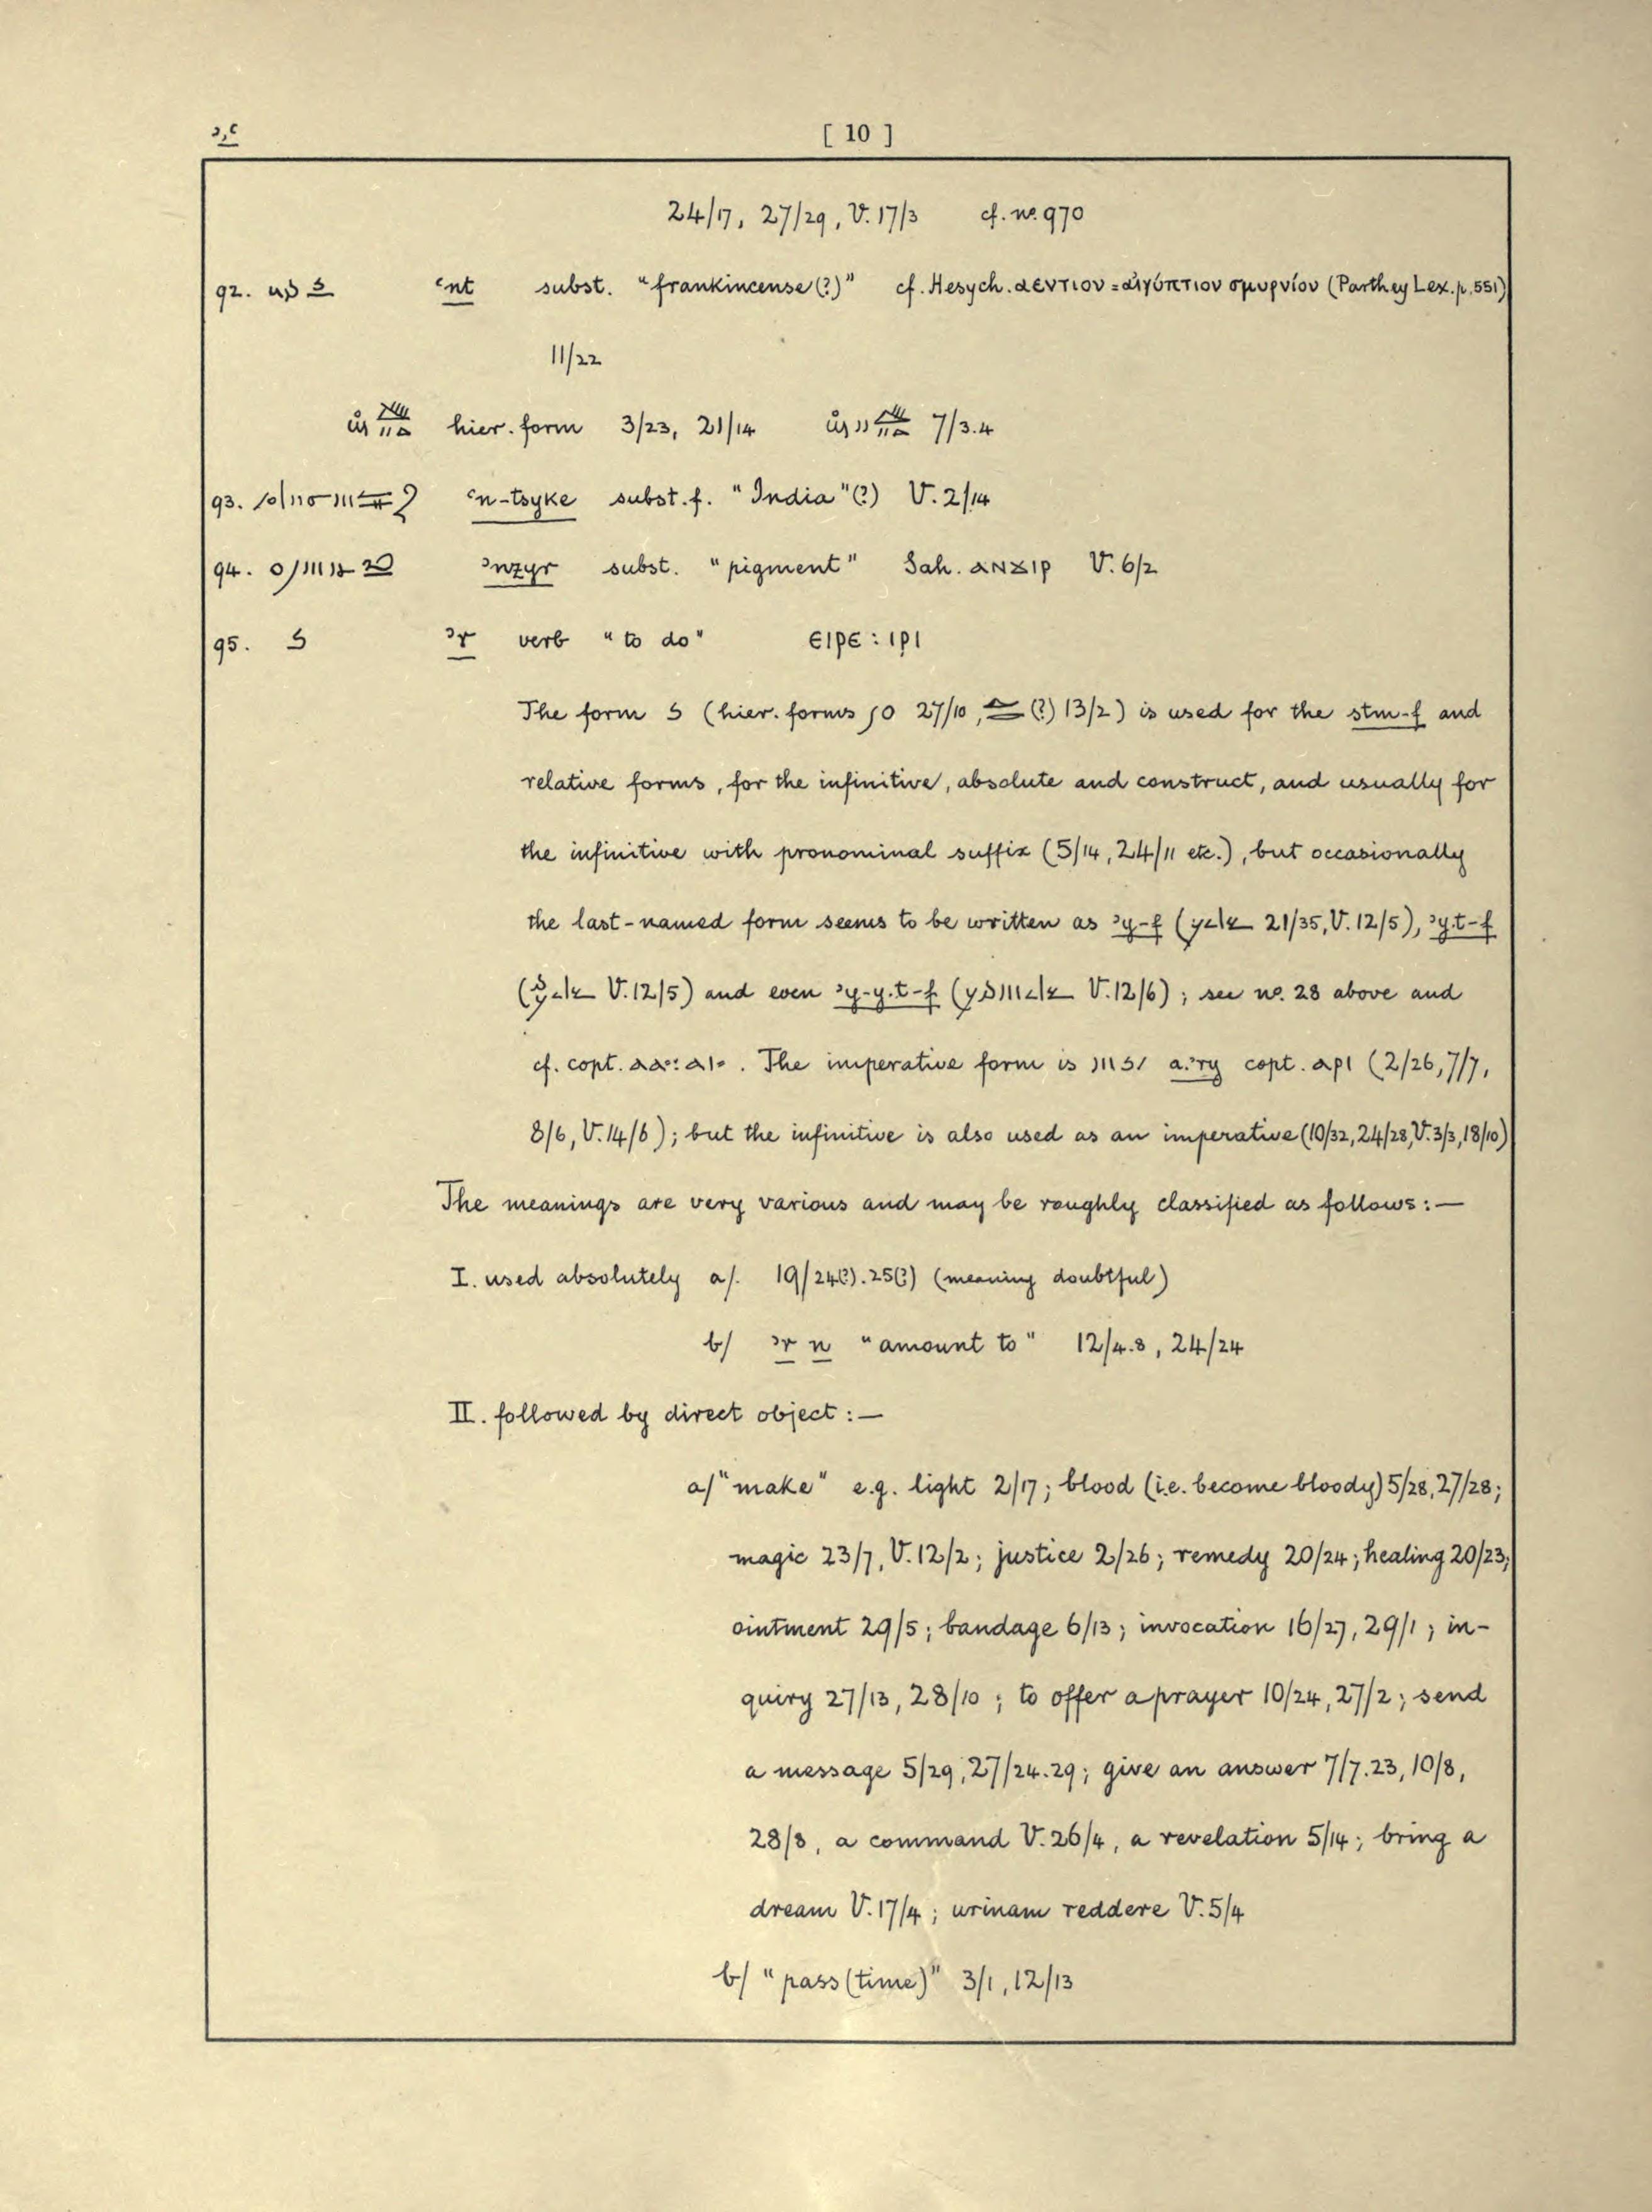 ꜣ,ꜥ [ 10 ]
24/17, 27/29, V. 17/3 cf. no. 970
92. ꜥnt subst. "frankincense (?)" cf. Hesych. αεντιον = αἰγύπτιον σμυρνίον (Parthey Lex. p. 551)
11/22
hier. form 3/23, 21/14 7/3.4
93. ꜥn-tsyke subst. f. "India" (?) V. 2/14
94. ꜣnzyr subst. "pigment" Sah. ⲁⲛϫⲓⲣ V. 6/2
95. ꜣr verb "to do" ⲉⲓⲣⲉ : ⲓⲣⲓ
The form (hier. forms 27/10, (?) 13/2) is used for the stm-f and
relative forms, for the infinitive, absolute and construct, and usually for
the infinitive with pronominal suffix (5/14, 24/11 etc.), but occasionally
the last-named form seems to be written as ꜣy-f ( 21/35, V. 12/5), ꜣy.t-f
( V. 12/5) and even ꜣy-y.t-f ( V. 12/6) ; see no. 28 above and
cf. copt. ⲁⲁ⸗: ⲁⲓ⸗. The imperative form is a.ꜣry copt. ⲁⲣⲓ (2/26, 7/7,
8/6, V. 14/6) ; but the infinitive is also used as an imperative (10/32, 24/28, V. 3/3, 18/10)
The meanings are very various and may be roughly classified as follows :—
I. used absolutely a/. 19/24(?).25(?) (meaning doubtful)
b/ ꜣr n "amount to" 12/4.8, 24/24
II. followed by direct object :—
a/ "make" e.g. light 2/17 ; blood (i.e. become bloody) 5/28, 27/28 ;
magic 23/7, V. 12/2 ; justice 2/26 ; remedy 20/24 ; healing 20/23 ;
ointment 29/5 ; bandage 6/13 ; invocation 16/27, 29/1 ; in-
quiry 27/13, 28/10 ; to offer a prayer 10/24, 27/2 ; send
a message 5/29, 27/24.29 ; give an answer 7/7.23, 10/8,
28/8, a command V. 26/4, a revelation 5/14 ; bring a
dream V. 17/4 ; urinam reddere V. 5/4
b/ "pass (time)" 3/1, 12/13